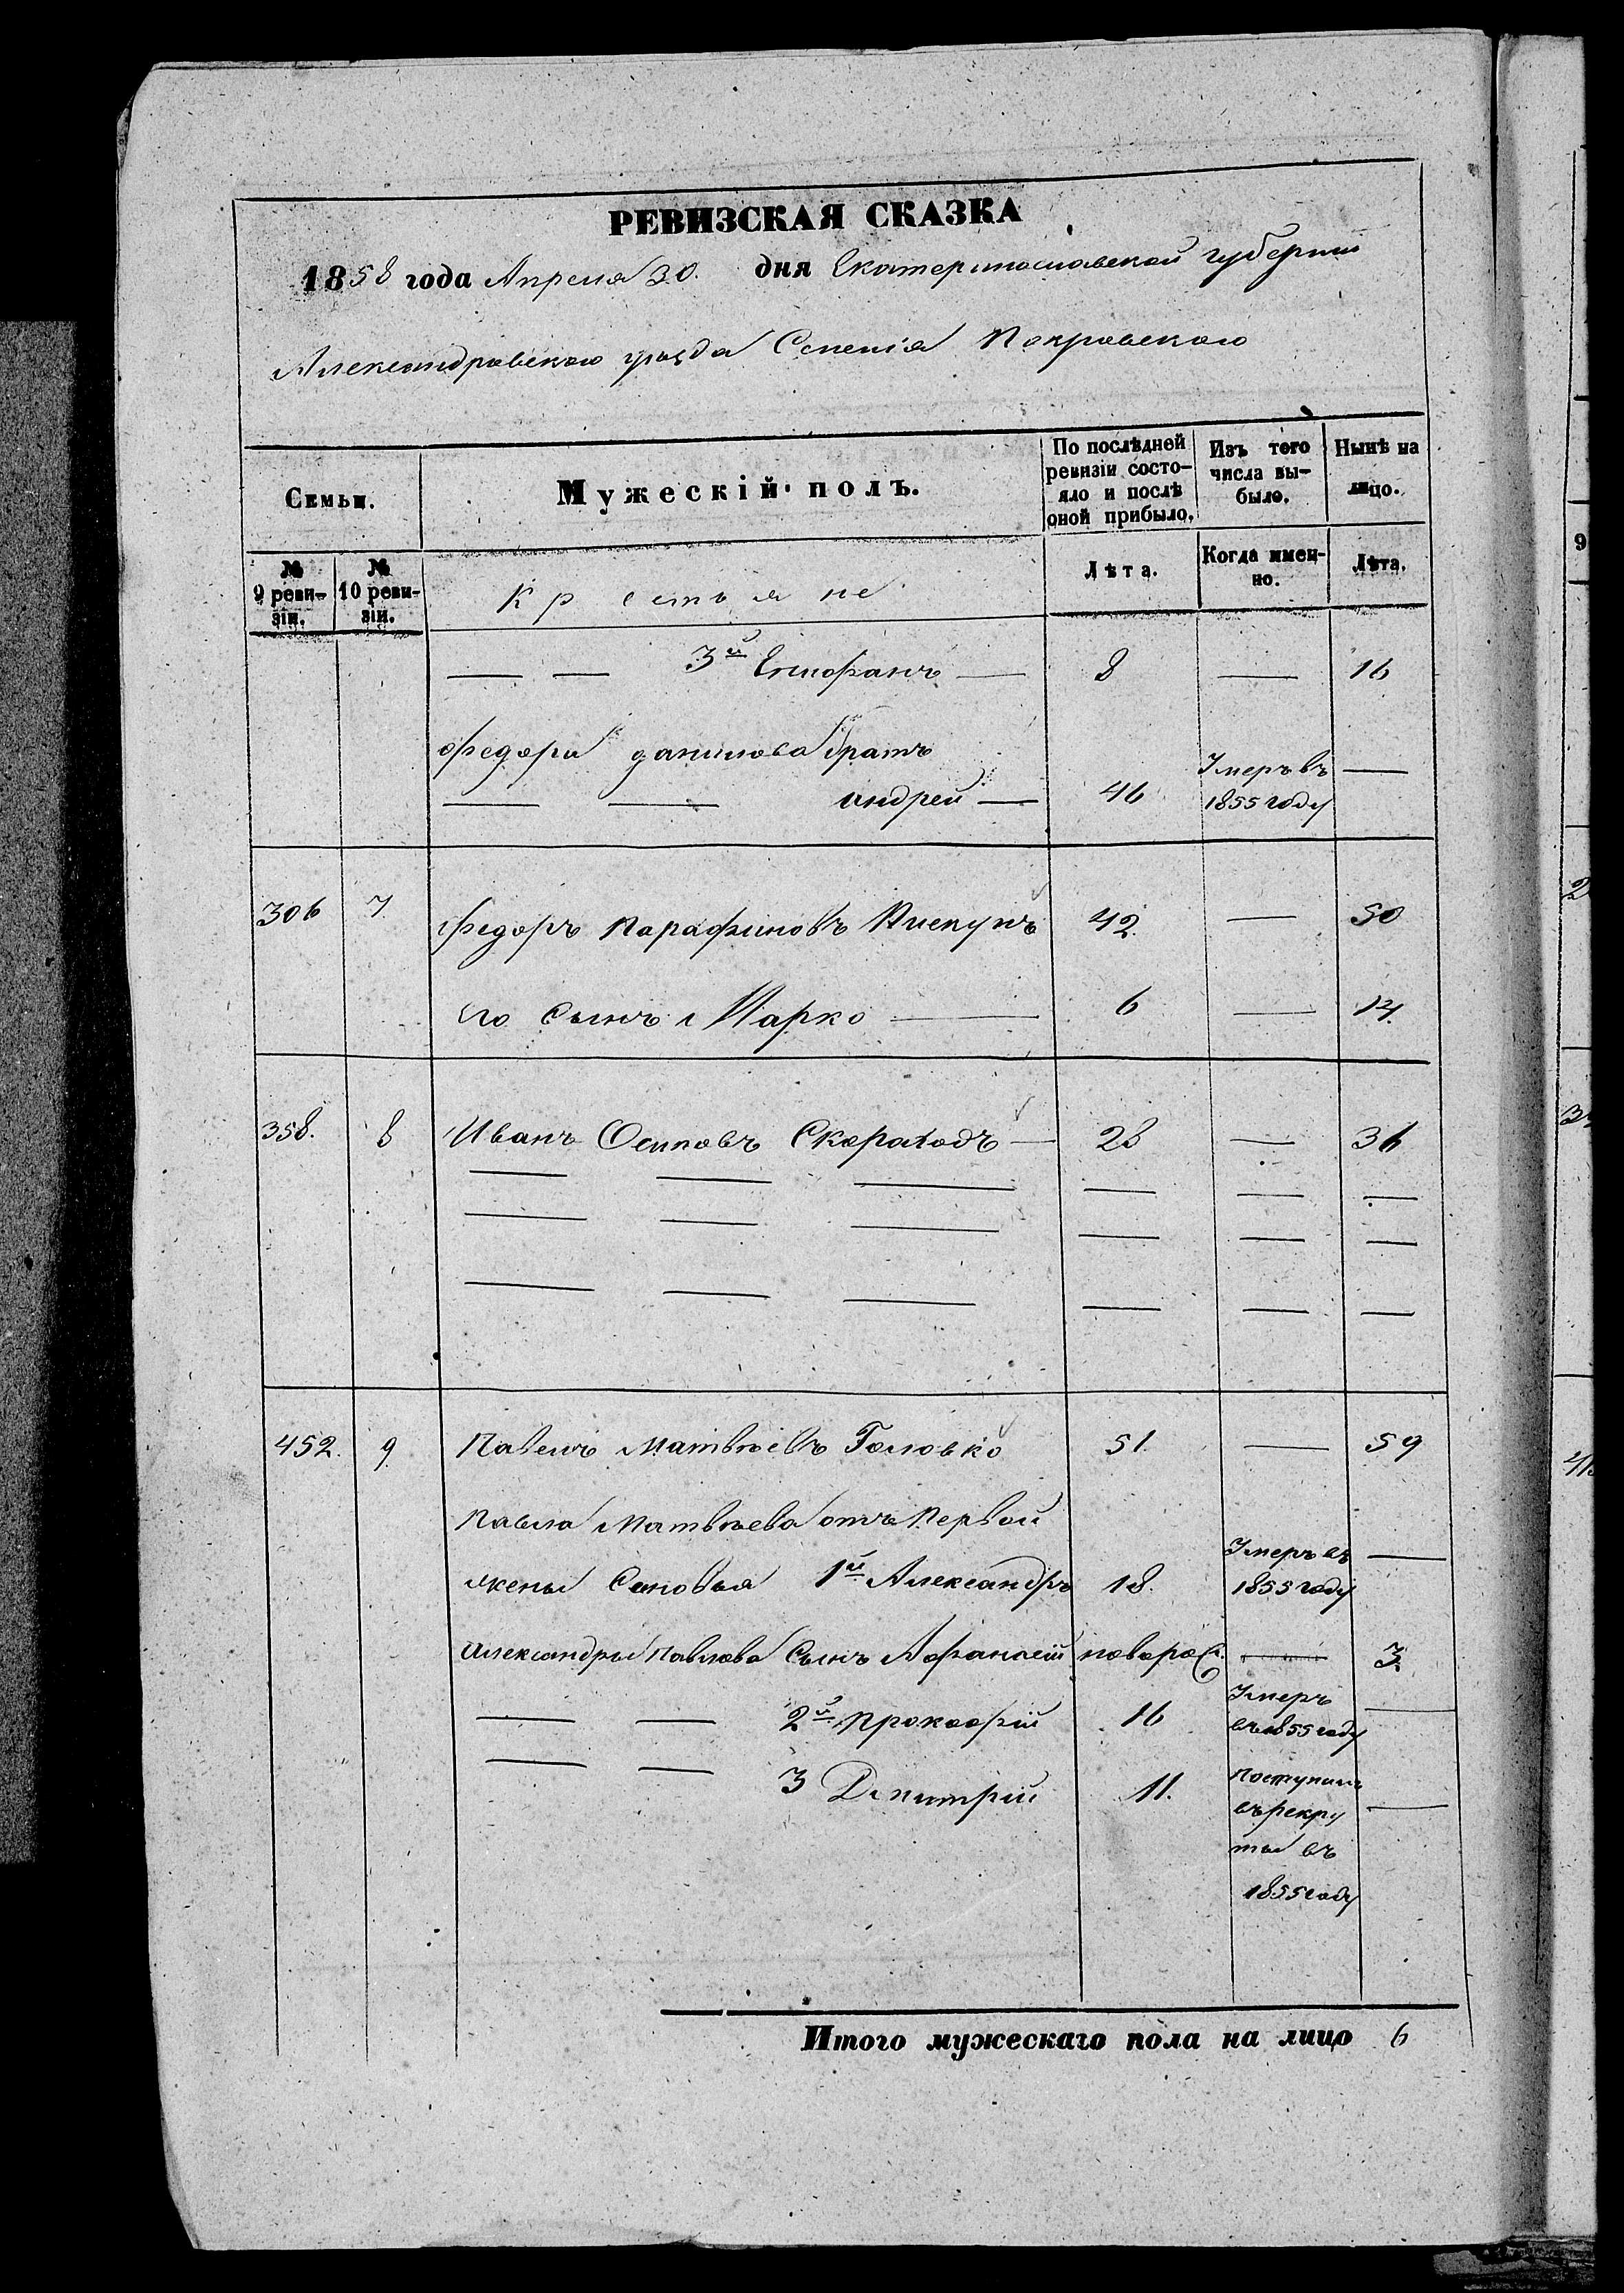 РЕВИЗСКАЯ СКАЗКА
1858 года Апреля 30. дня Екатеринославской губернии
Александровского уѣзда Селенія Покровского
Семьи.
Мужескій полъ.
По послѣдней ревизіи состо-
яло и послѣ
оной прибыло.
Изъ того
числа вы-
было.
Нынѣ на
лицо.
№
9 реви-
зіи.
№
10 реви-
зіи.
Крестьяне
Лѣта.
Когда имен-
но.
Лѣта.
— — 3й Епифанъ — 8 — 16
Федора данилова братъ
— — андрей — 46 Умеръ въ 1855 году —
306 7. Федоръ Парафиновъ 42. — 50
его сынъ Марко — 6 — 14.
358. 8 Иванъ Осиповъ Скороходъ — 28 — 36
— — — — — —
— — — — — —
— — — — — —
452. 9. Павелъ Матвѣевъ Головко 51. — 59
Павла Матвѣева отъ Первой
жены Сыновья 1й Александръ 18. Умеръ въ 1855 году —
александры Павлова Сынъ Афанасій новорож. — 3.
— — 2й Прокофій 16 Умеръ въ 1855 году —
— — 3 Дмитрій 11. Поступилъ
въ рекру
ты въ
1855 году —
Итого мужескаго пола на лицо 6